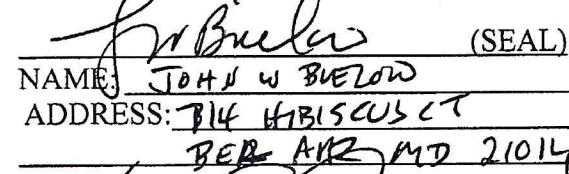 J W Buelow (SEAL)
NAME: JOHN W BUELOW
ADDRESS: 314 HIBISCUS CT
BER AIR MD 21014